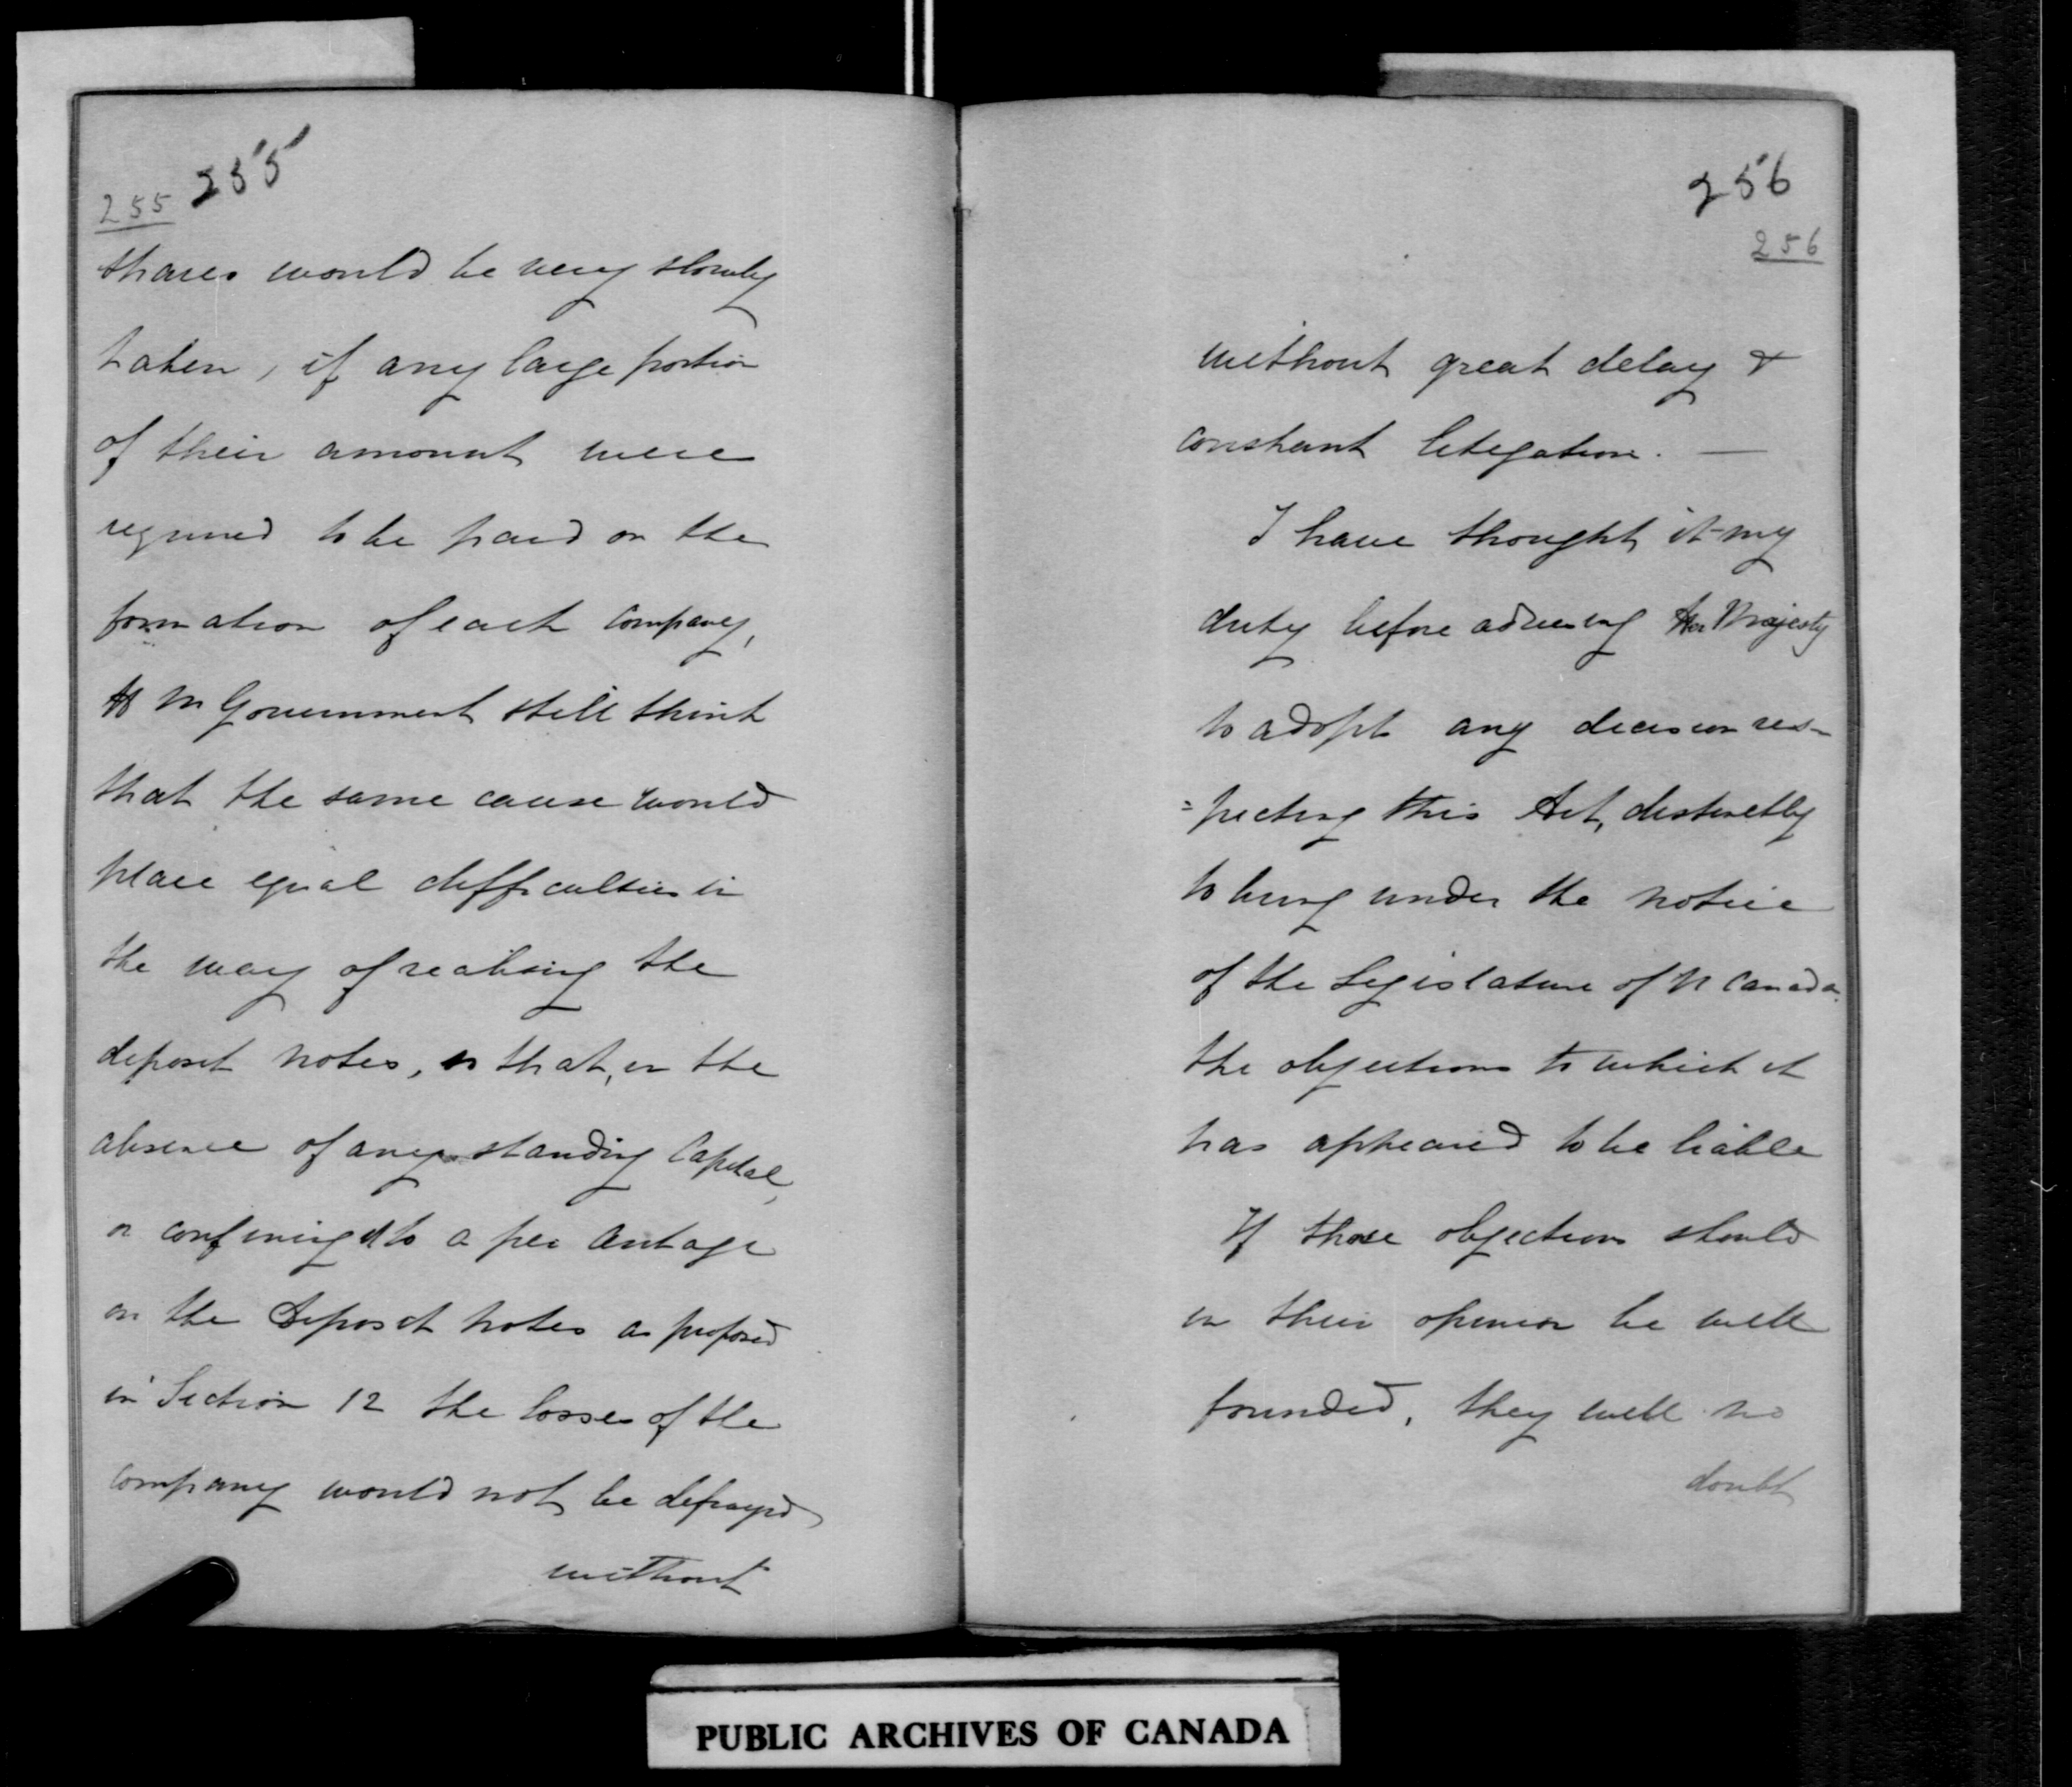 255 255
shares would be very slowly
taken, if any large portion
of their amount were
required to be paid on the
formation of each company,
H M Government still think
that the same cause would
place equal difficulties in
the way of realising the
deposit notes, so that, in the
absence of any standing Capital,
or confining it to a per Centage
on the deposit notes as proposed
in Section 12 the losses of the
company would not be defrayed
without
256
256
without great delay &
constant litigation. —
I have thought it my
duty before advising Her Majesty
to adopt any decision res-
=pecting this Act, distinctly
to bring under the notice
of the Legislature of U Canada
the objections to which it
has appeared to be liable
If those objections should
in their opinion be well
founded, they will no
doubt
PUBLIC ARCHIVES OF CANADA